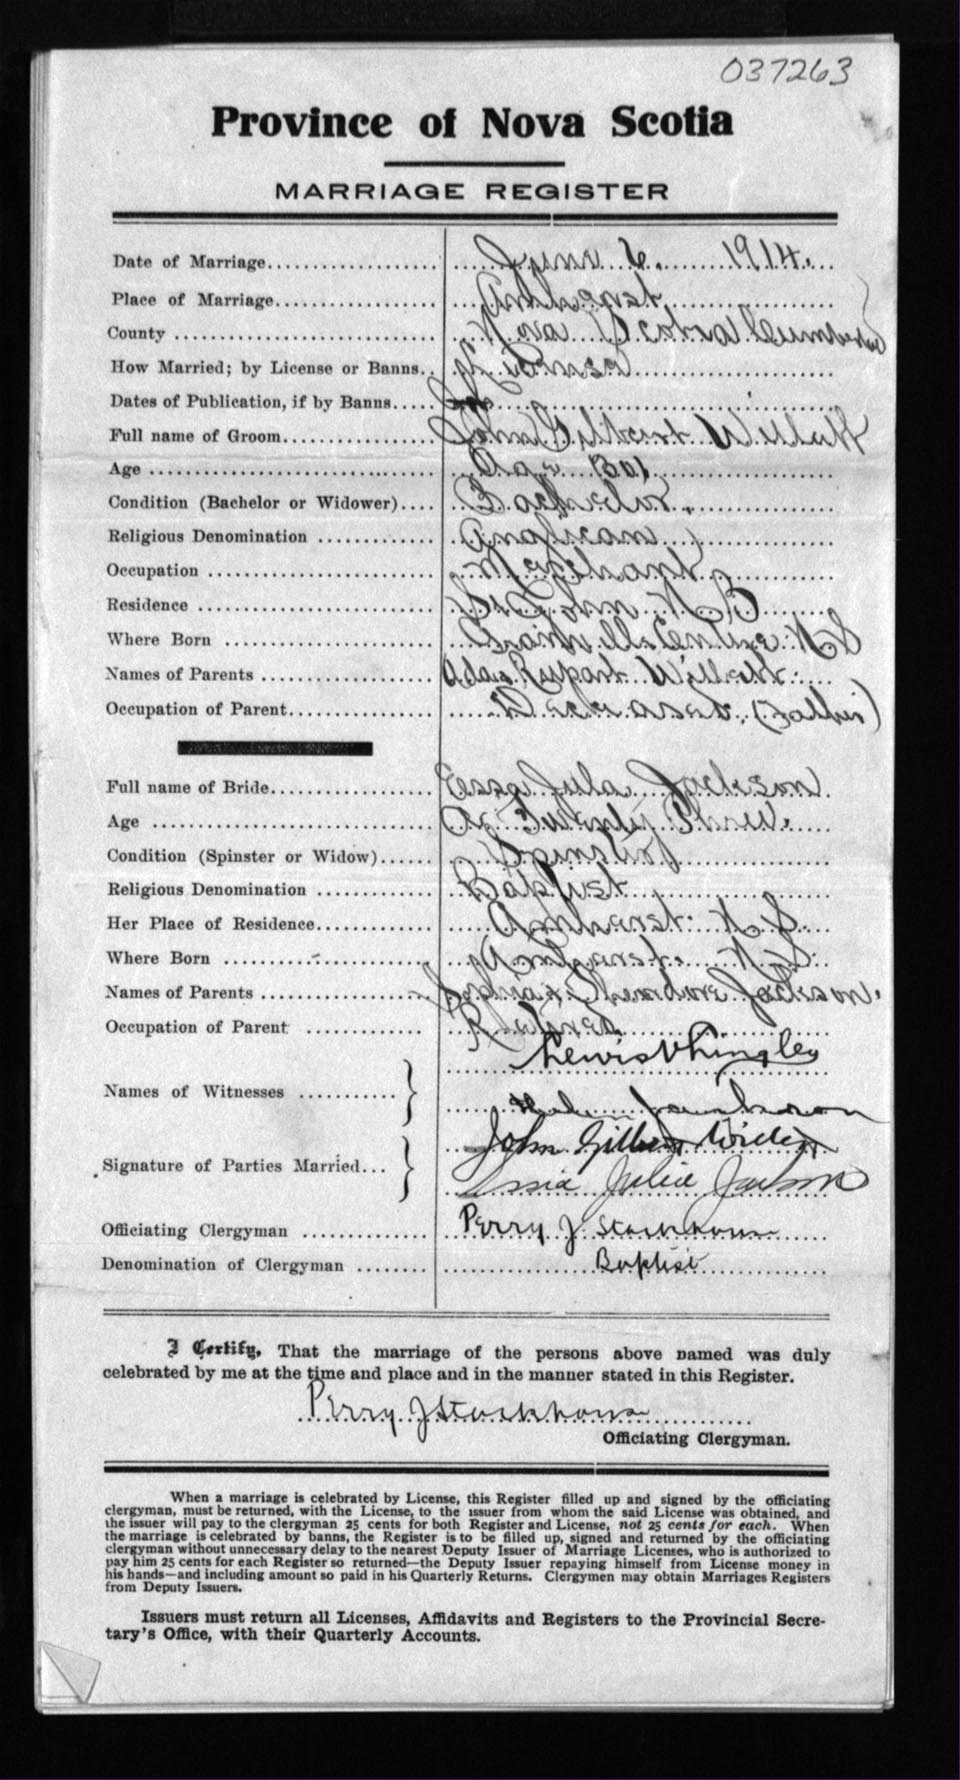 037263
Province of Nova Scotia
MARRIAGE REGISTER
Date of Marriage June 6. 1914.
Place of Marriage Amherst
County Nova Scotia Cumberland
How Married; by License or Banns License
Dates of Publication, if by Banns
Full name of Groom John Gilbert Willett
Age Age 30
Condition (Bachelor or Widower) Bachelor
Religious Denomination Anglican
Occupation Merchant
Residence St John N B
Where Born N S
Names of Parents Rupert Willett
Occupation of Parent Deceased (Father)
Full name of Bride Jackson
Age Twenty Three
Condition (Spinster or Widow) Spinster
Religious Denomination Baptist
Her Place of Residence Amherst N S
Where Born Amherst N S
Names of Parents Jackson
Occupation of Parent Retired
Names of Witnesses Lewis
Jackson
Signature of Parties Married John Gilbert Willett
Julia Jackson
Officiating Clergyman Perry J Stackhouse
Denomination of Clergyman Baptist
I Certify, That the marriage of the persons above named was duly
celebrated by me at the time and place and in the manner stated in this Register.
Perry J Stackhouse
Officiating Clergyman.
When a marriage is celebrated by License, this Register filled up and signed by the officiating
clergyman, must be returned, with the License, to the issuer from whom the said License was obtained, and
the issuer will pay to the clergyman 25 cents for both Register and License, not 25 cents for each. When
the marriage is celebrated by banns, the Register is to be filled up, signed and returned by the officiating
clergyman without unnecessary delay to the nearest Deputy Issuer of Marriage Licenses, who is authorized to
pay him 25 cents for each Register so returned—the Deputy Issuer repaying himself from License money in
his hands—and including amount so paid in his Quarterly Returns. Clergymen may obtain Marriages Registers
from Deputy Issuers.
Issuers must return all Licenses, Affidavits and Registers to the Provincial Secre-
tary's Office, with their Quarterly Accounts.